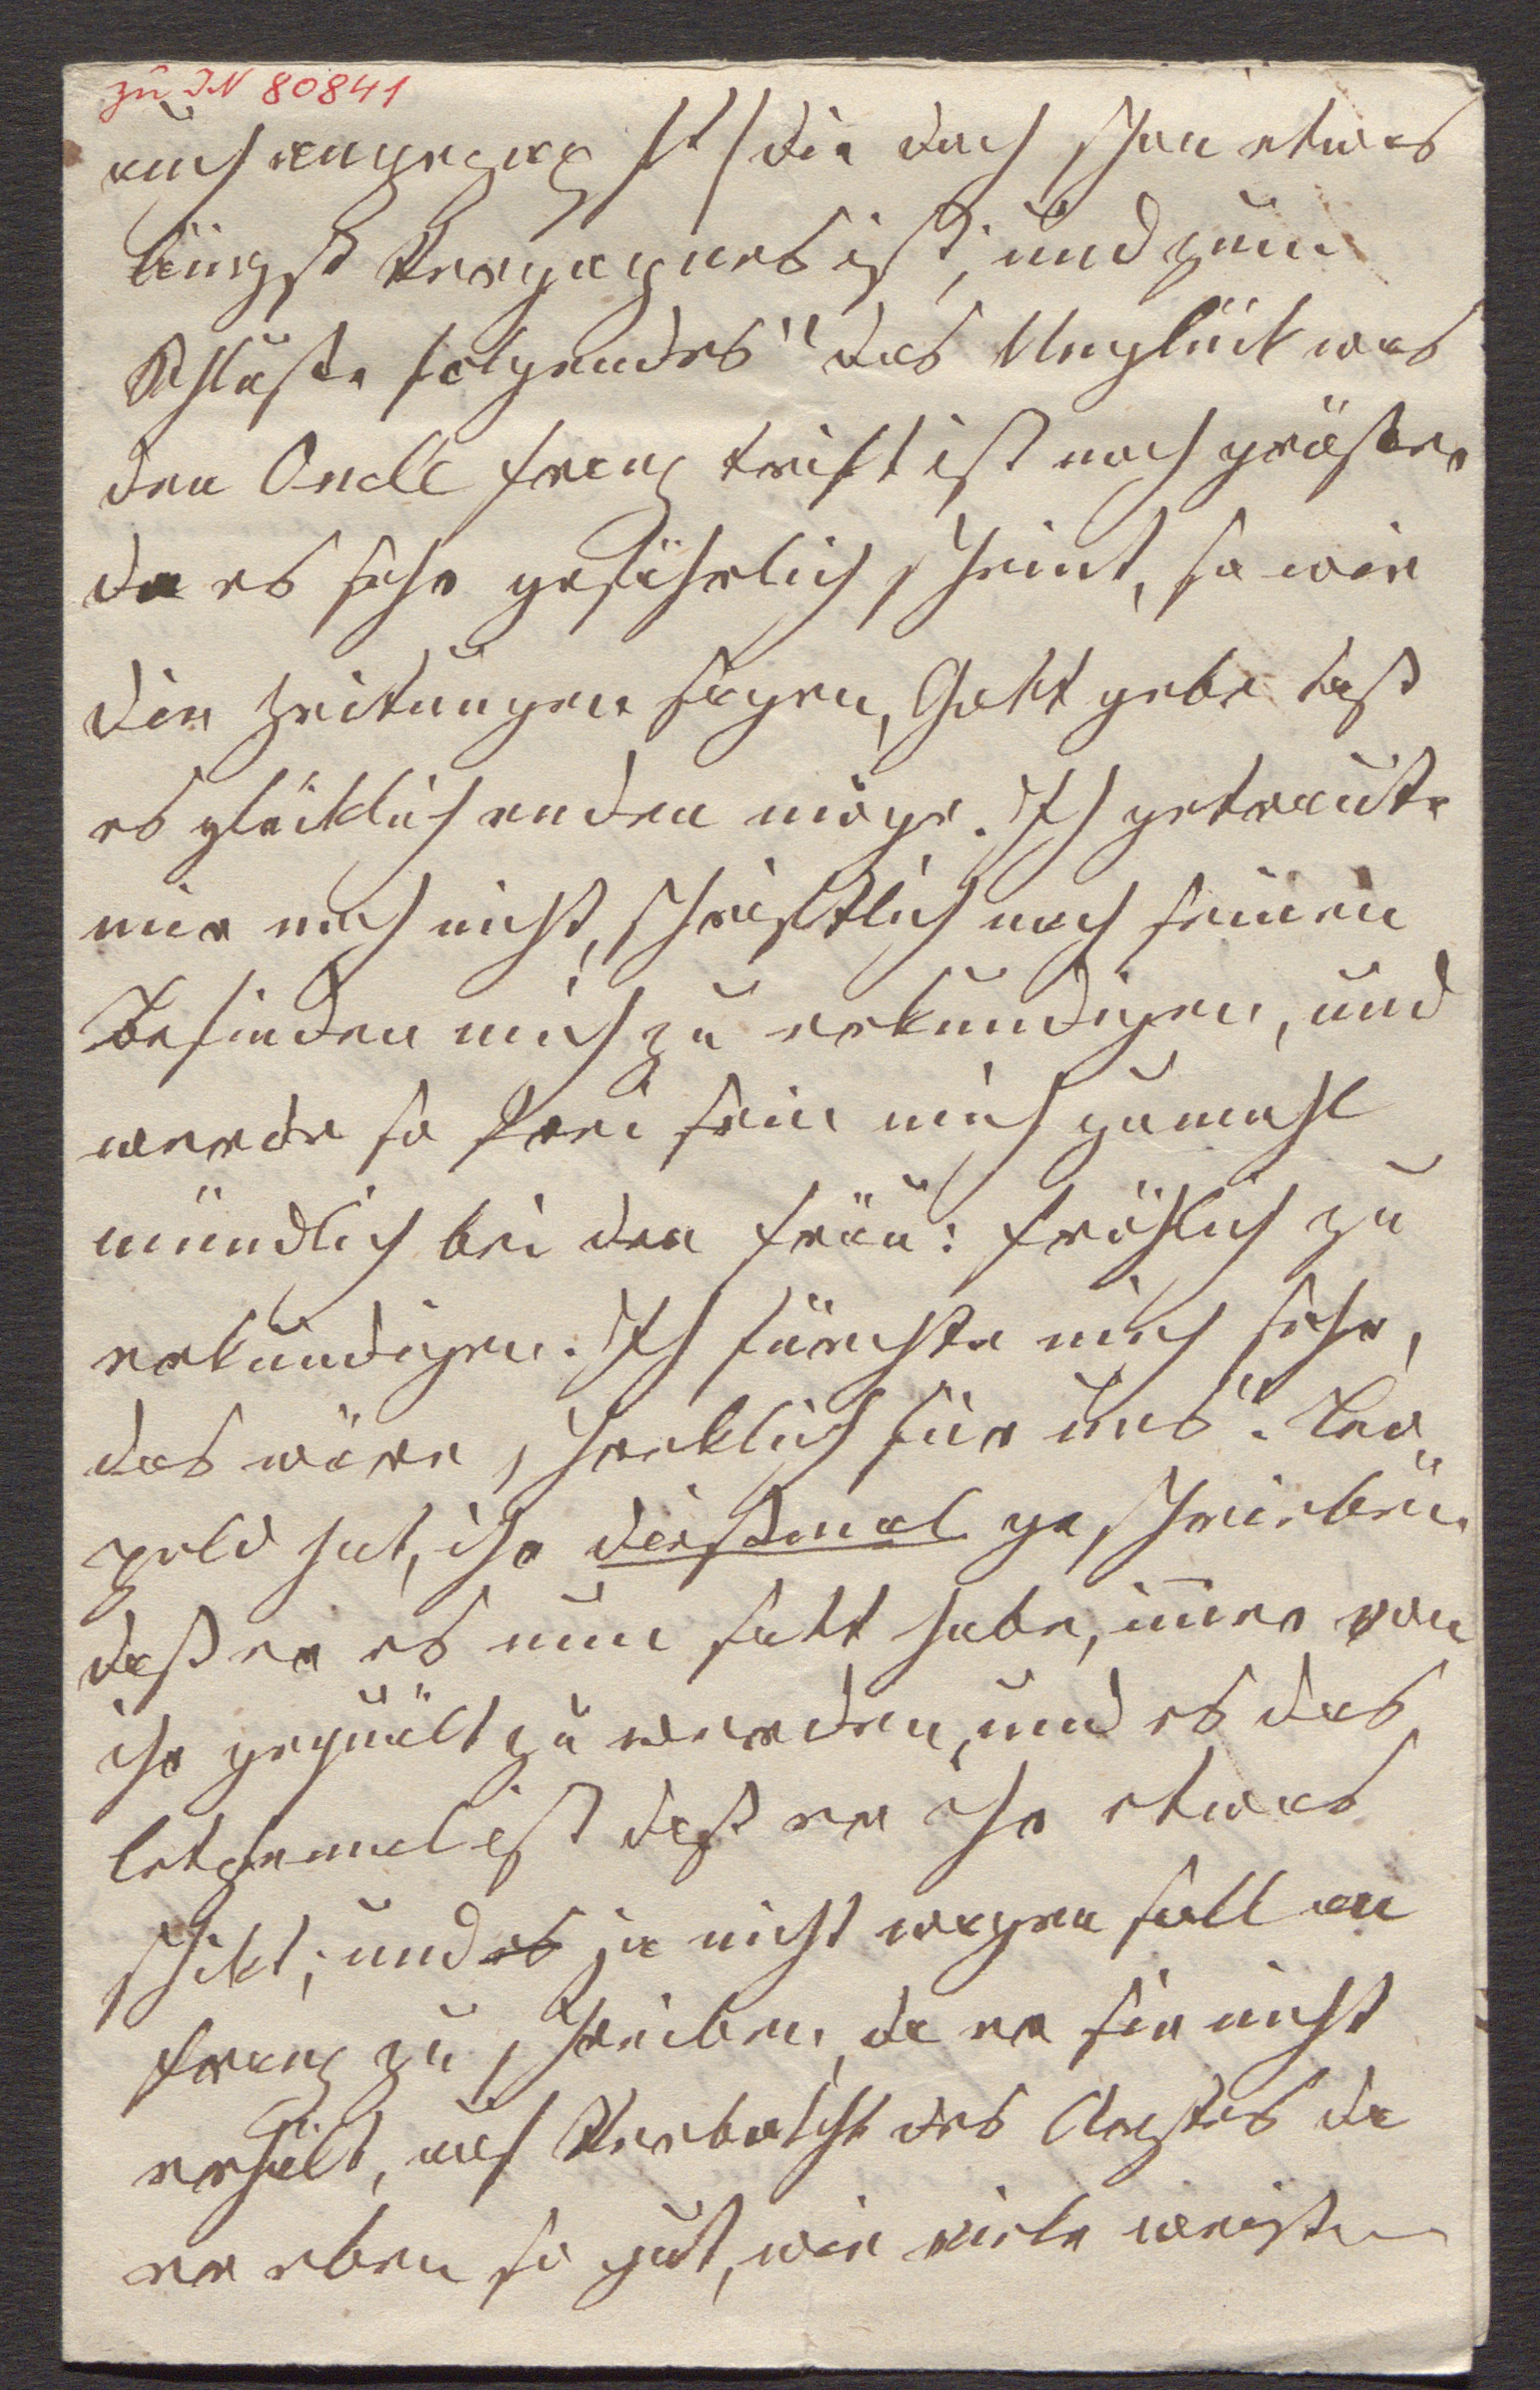 zu IN 80841
auch angezeigt ist / die doch schon etwas
längst Vergangnes ist, und zum
Schluße folgendes " das Unglück was
den Oncle Franz trift ist noch größer
da es sehr gefährlich scheint, so wie
die Zeitungen sagen, Gott gebe daß
es glücklich enden möge. Ich getraute
mir noch nicht, schriftlich nach seinen
Befinden mich zu erkundigen, und
werde so frei sein mich zumahl
mündlich bei den Fräu: Fröhlich zu
erkundigen. Ich fürchte mich sehr,
das wäre schrecklich für uns ". Leo¬
pold hat, ihr dießmal geschrieben
daß er es nun satt habe, imer von
ihr gequält zu werden, und es das
letztemal ist daß er ihr etwas
schikt, und es ja nicht wagen soll an
Franz zu schreiben, da er sie nicht
erhält, auf Verboth des Arztes da
er eben so gut, wie viele